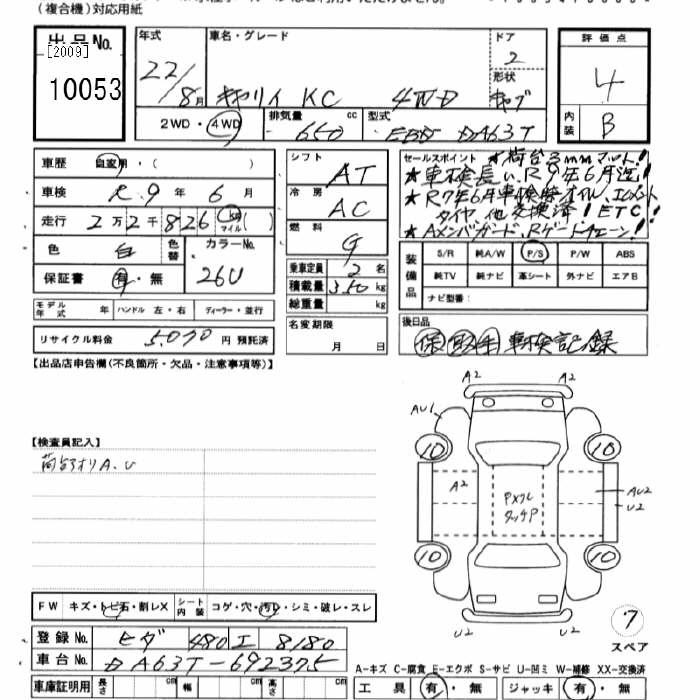 (複合機)対応用紙
出品No.
[2009]
10053
年式
22/8月
車名・グレード
キャリイ KC 4WD
ドア
2
形状
キャブ
評価点
4
内装
B
2WD・4WD
排気量 650 cc
型式 EBD DA63T
車歴 自家用・( )
車検 R9年6月
走行 2万2千826 km マイル( )
色 白 色替
カラーNo. 26U
保証書 有・無
シフト AT
冷房 AC
燃料 G
乗車定員 2名
積載量 350 kg
総重量 kg
セールスポイント ★荷台3mmマット!
★車検長い、R9年6月迄!
★R7年6月車検時オイル、エレメント
タイヤ、他交換済!ETC!
★Aメンバガード、Rゲートチェーン!
装備品
S/R 純A/W P/S P/W ABS
純TV 純ナビ 革シート 外ナビ エアB
ナビ型番:
モデル年式 年 ハンドル 左・右 ディーラー・並行
リサイクル料金 5,070 円 預託済
名変期限
月 日
後日品
保 取 手 車検記録
【出品店申告欄(不良箇所・欠品・注意事項等)】
【検査員記入】
荷台アオリA、U
A2 A2
AU1
10 10
A2
PXクル
タッチP
AU2
U2
10 10
U2 U2
7
スペア
FW キズ・トビ石・割レX シート内装 コゲ・穴・汚レ・シミ・破レ・スレ
登録No. ヒダ 480 エ 8180
車台No. DA63T-692375
A-キズ C-腐食 E-エクボ S-サビ U-凹ミ W-補修 XX-交換済
車庫証明用 長さ cm 幅 cm 高さ cm
工具 有・無 ジャッキ 有・無